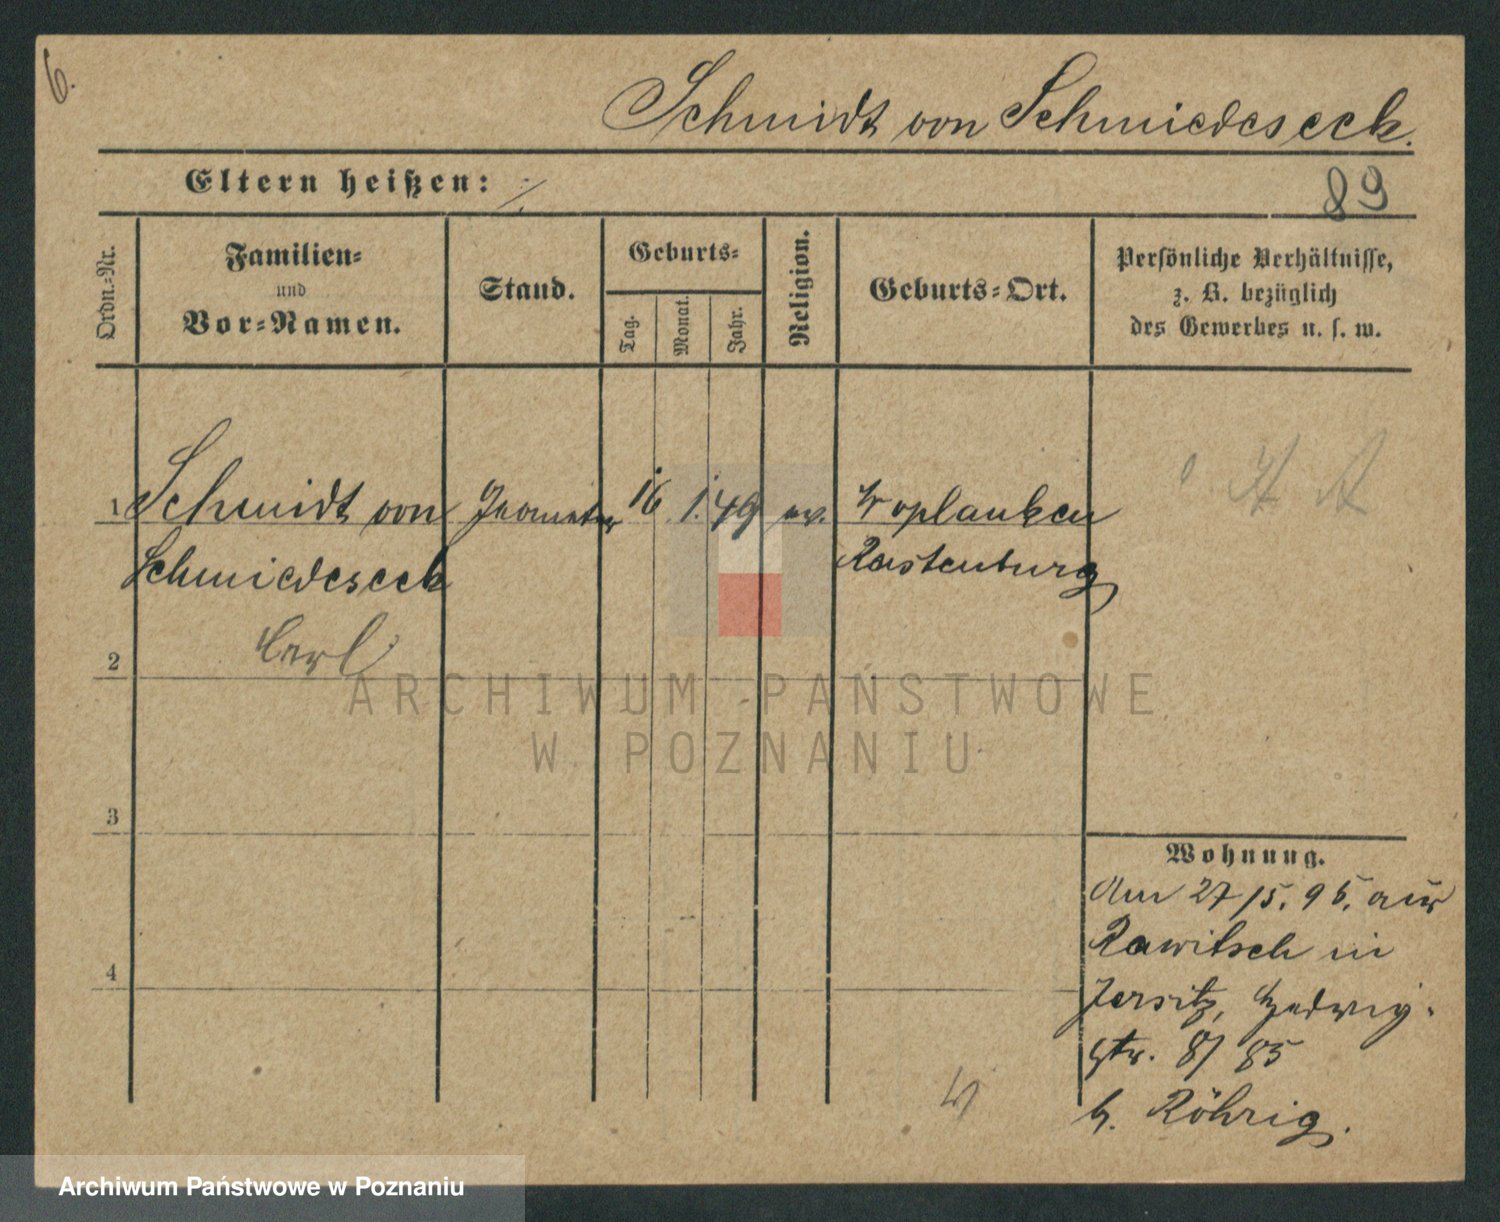 6.
Schmidt von Schmiedeseck.
Eltern heißen: ./.
89
Ordn.-Nr.
Familien-
und
Vor-Namen.
Stand.
Geburts-
Tag.
Monat.
Jahr.
Religion.
Geburts-Ort.
Persönliche Verhältnisse,
z. B. bezüglich
des Gewerbes u. s. w.
1 Schmidt von Geometer 16 1. 49 ev. Woplauken
Schmiedeseck Rastenburg
Carl
2
3
4
Wohnung.
Am 27/5. 95. aus
Rawitsch in
Jersitz, Hedwig-
str. 8/85
b. Röhrig.
ARCHIWUM PAŃSTWOWE
W POZNANIU
Archiwum Państwowe w Poznaniu